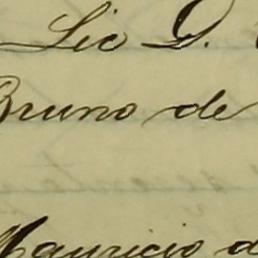 Lic D.
Bruno de
Mauricio d